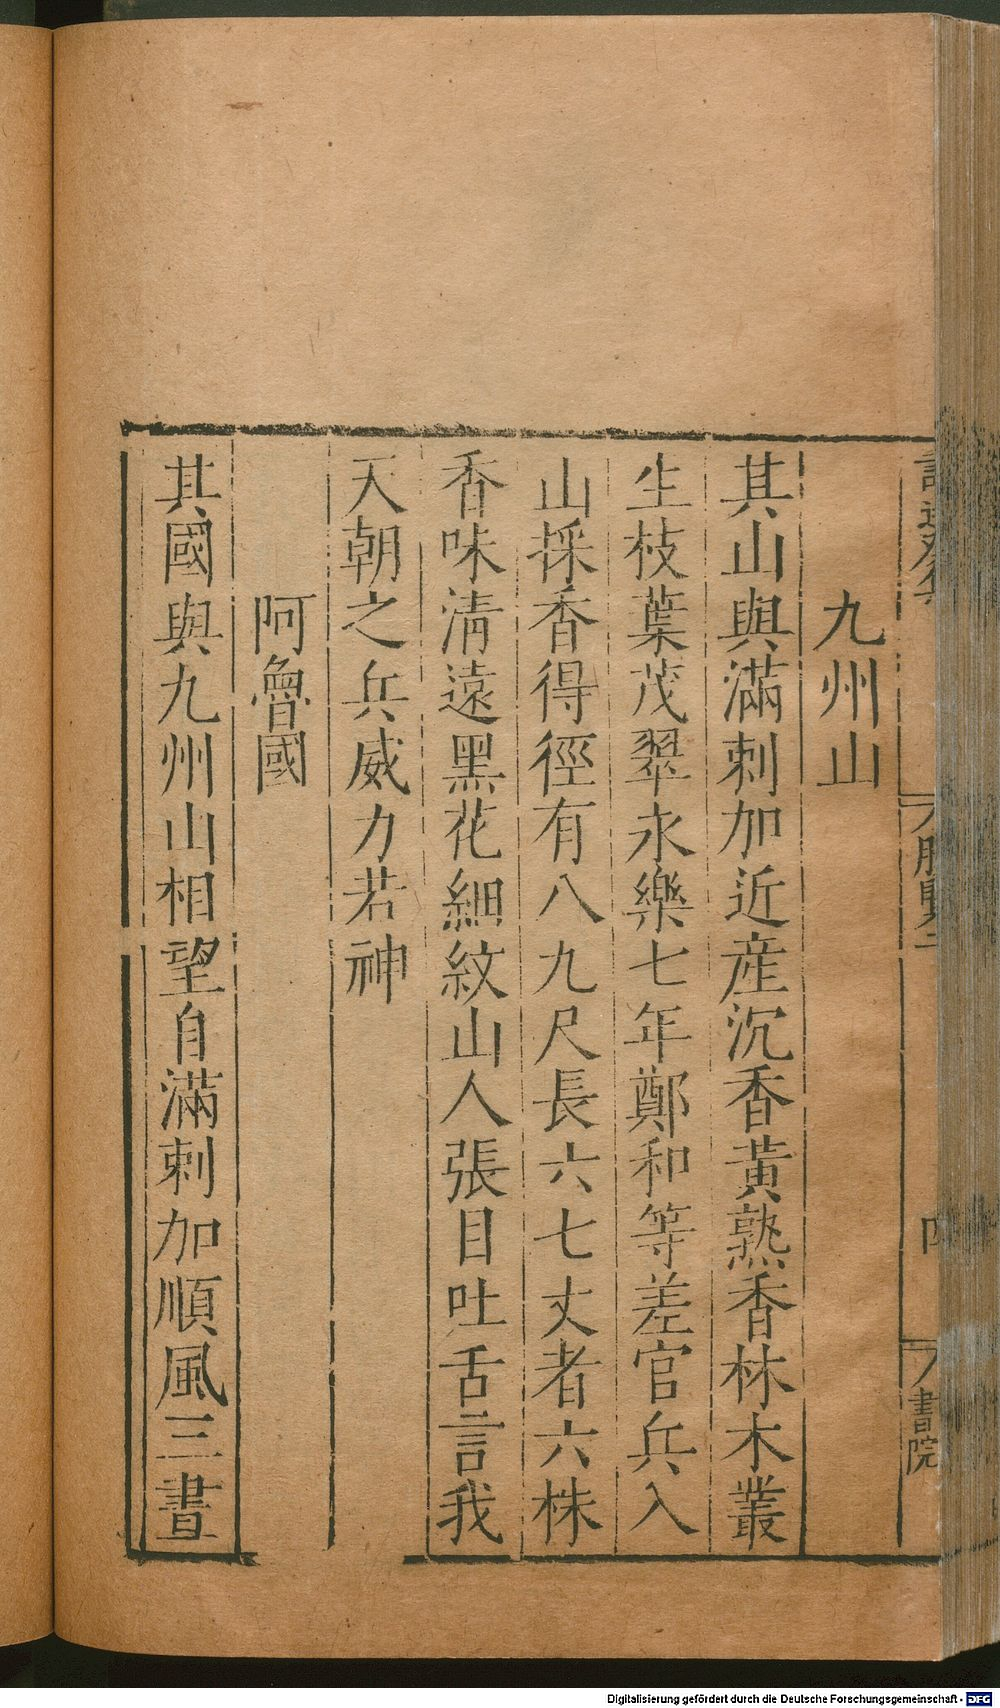 九州山
其山與滿剌加近産沉香黄熟香林木叢
生枝葉茂翠永樂七年鄭和等差官兵入
山採香得徑有八九尺長六七丈者六株
香味清遠黑花細紋山人張目吐舌言我
天朝之兵威力若神
阿魯國
其國與九州山相望自滿剌加順風三晝
四
書院
Digitalisierung gefördert durch die Deutsche Forschungsgemeinschaft - DFG